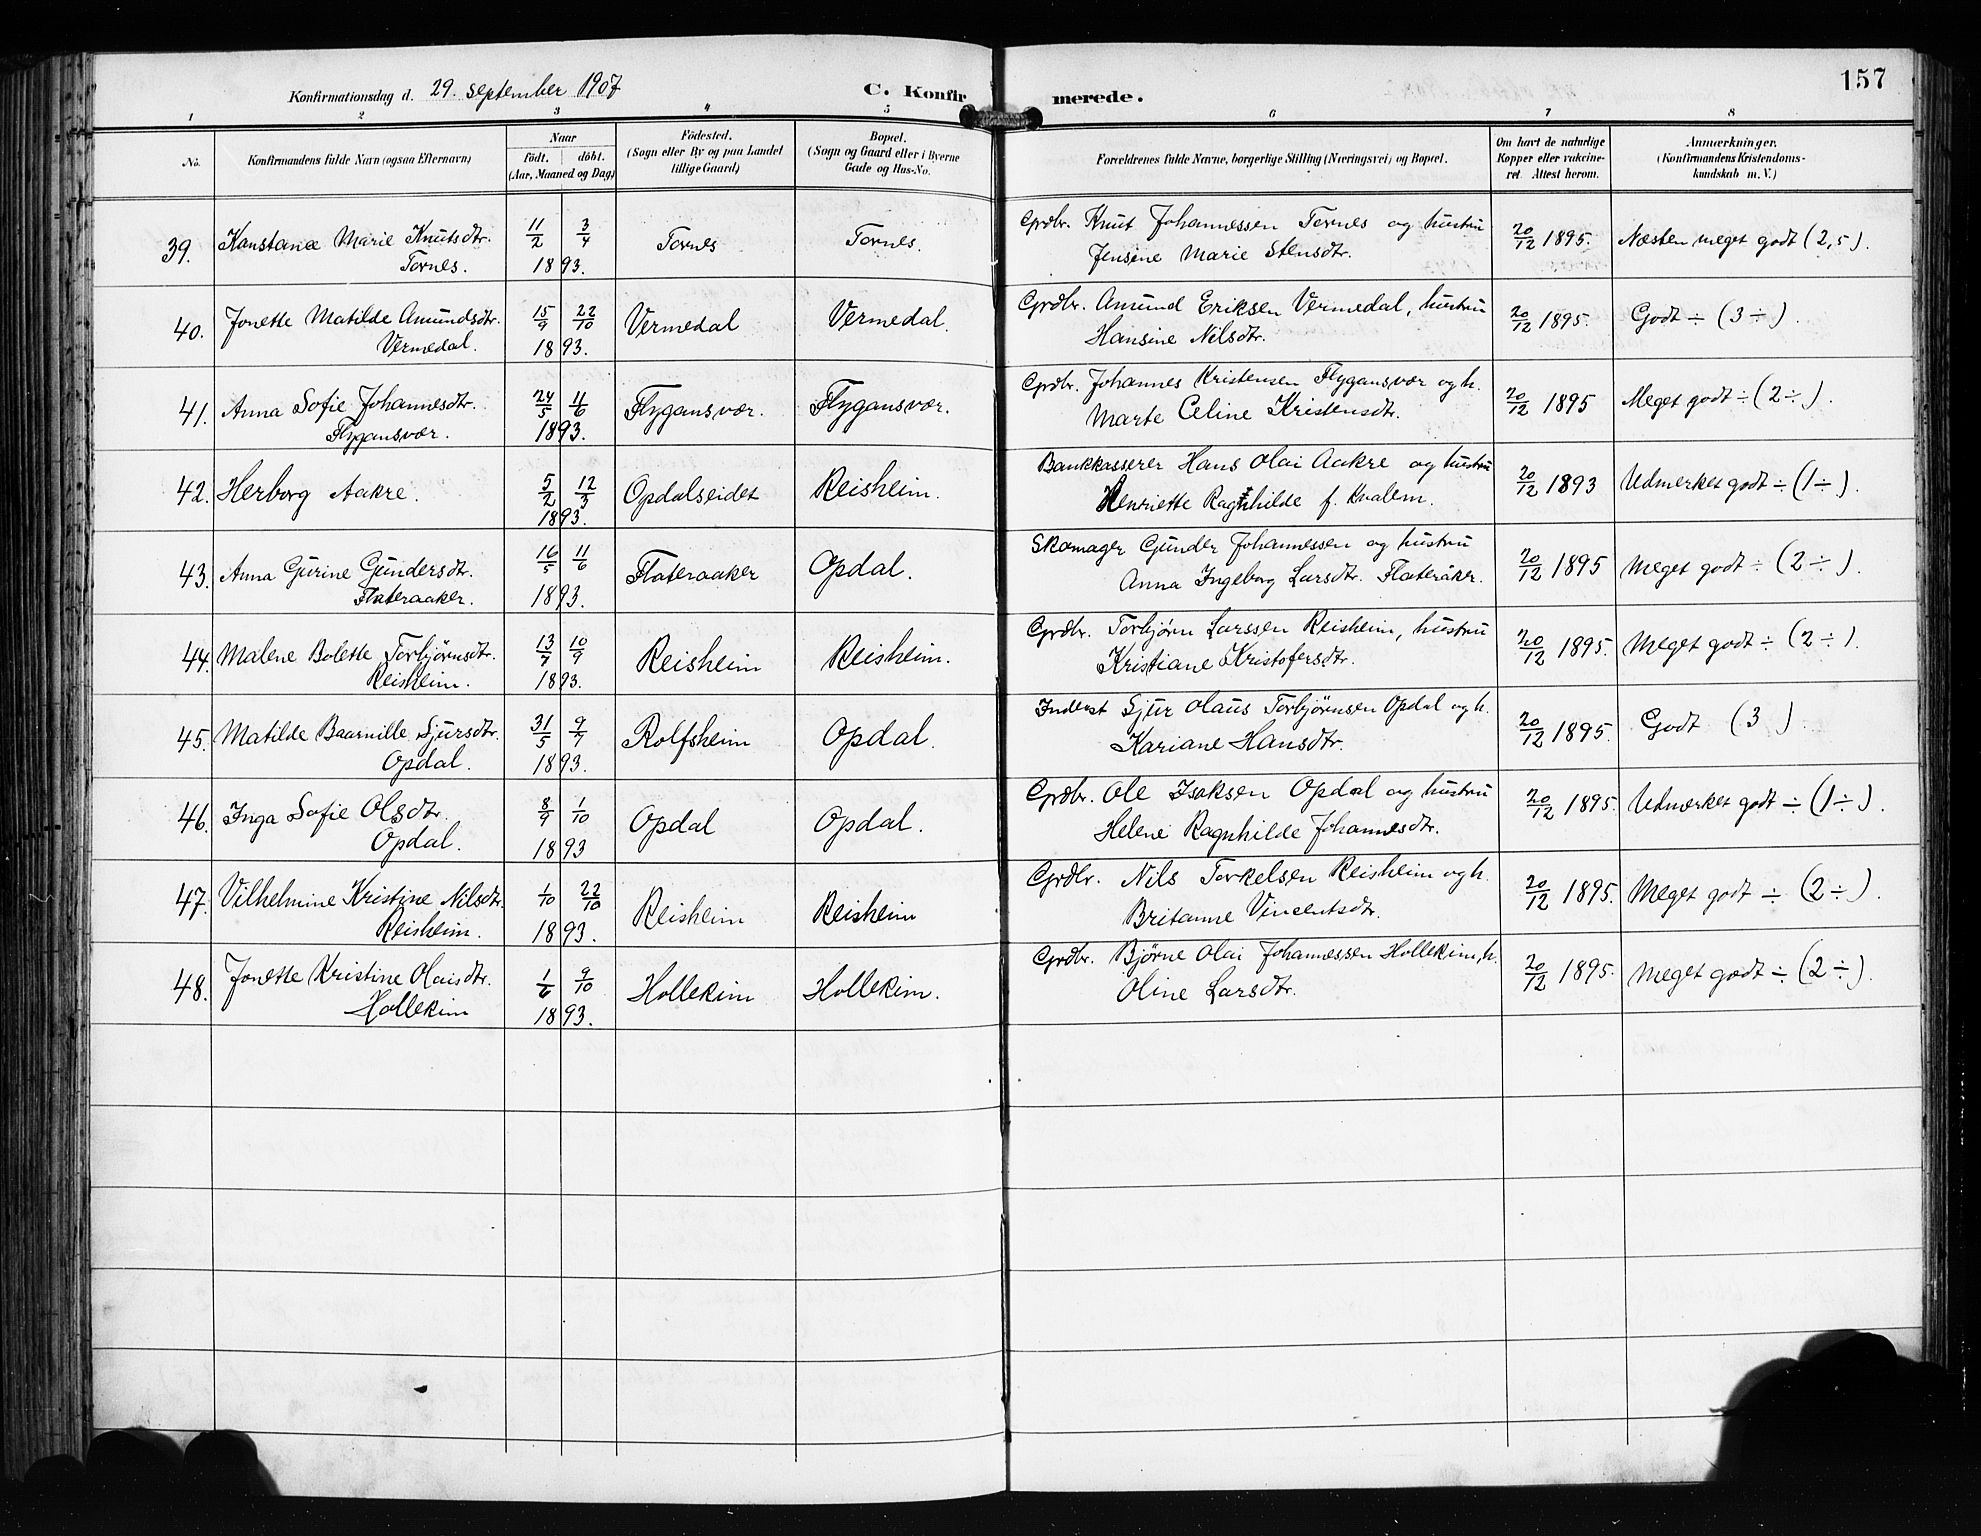 157
Konfirmationsdag d. 29. september 1907
C. Konfirmerede.
1 2 3 4 5 6 7 8
No.
Konfirmandens fulde Navn (ogsaa Efternavn)
Naar
födt. döbt.
(Aar, Maaned og Dag)
Födested.
(Sogn eller By og paa Landet
tillige Gaard)
Bopæl.
(Sogn og Gaard eller i Byerne
Gade og Hus-No.
Forældrenes fulde Navne, borgerlige Stilling (Næringsvei) og Bopæl.
Om havt de naturlige
Kopper eller vakcine-
ret. Attest herom.
Anmærkninger.
(Konfirmandens Kristendoms-
kundskab m. V.)
39. Konstance Marie Knutsdtr. 11/2 3/4 Tornes Tornes. Grdbr. Knut Johannessen Tornes og hustru 20/12 1895. Næsten meget godt (2,5).
Tornes. 1893. Jensine Marie Stensdtr.
40. Jonette Matilde Amundsdtr. 15/9 22/10 Vermedal Vermedal. Grdbr. Amund Eriksen Vermedal, hustru 20/12 1895. Godt ÷ (3÷).
Vermedal. 1893. Hansine Nilsdtr.
41. Anna Sofie Johannesdtr. 24/5 11/6 Flygansvær. Flygansvær. Grdbr. Johannes Kristensen Flygansvær og h. 20/12 1895 Meget godt ÷ (2÷).
Flygansvær. 1893. Marte Celine Kristensdtr.
42. Herborg Aakre. 5/2 12/3 Opdalseidet Reisheim. Bankkasserer Hans Olai Aakre og hustru 20/12 1893 Udmerket godt ÷ (1÷).
1893. Henriette Ragnhilde f. Kvalem.
43. Anna Gurine Gundersdtr. 16/5 11/6 Flateraaker Opdal. Skomager Gunder Johannessen og hustru 20/12 1895 Meget godt ÷ (2÷).
Flateraaker. 1893. Anna Ingeborg Larsdtr. Flateråker.
44. Malene Bolette Torbjörnsdtr. 13/7 10/9 Reisheim Reisheim. Grdbr. Torbjørn Larssen Reisheim, hustru 20/12 1895. Meget godt ÷ (2÷).
Reisheim. 1893. Kristiane Kristofersdtr.
45. Matilde Baarnille Sjursdtr. 31/5 9/7 Rolfsheim Opdal. Inderst Sjur Olaus Torbjörnsen Opdal og h. 20/12 1895. Godt (3).
Opdal. 1893. Kariane Hansdtr.
46. Inga Sofie Olsdtr. 8/9 1/10 Opdal Opdal. Grdbr. Ole Isaksen Opdal og hustru 20/12 1895. Udmærket godt ÷ (1÷).
Opdal. 1893 Helene Ragnhilde Johannesdtr.
47. Vilhelmine Kristine Nilsdtr. 1/10 22/10 Reisheim Reisheim Grdbr. Nils Torkelsen Reisheim og h. 20/12 1895. Meget godt ÷ (2÷).
Reisheim. 1893. Britanne Vincentsdtr.
48. Jonette Kristine Olaisdtr. 1/6 9/10 Hollekim Hollekim. Grdbr. Bjørne Olai Johannessen Hollekim, h. 20/12 1895. Meget godt ÷ (2÷).
Hollekim 1893. Oline Larsdtr.